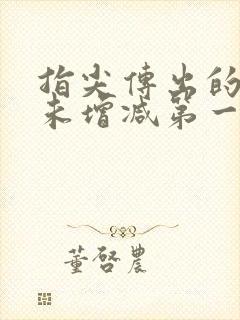 指尖傳出的
未增减第一
董啓農